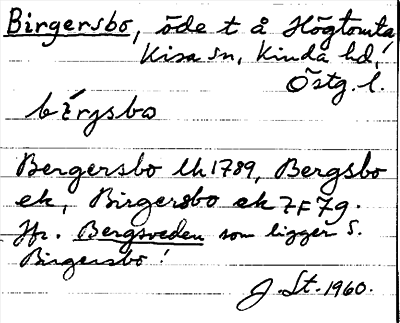 Birgersbo, öde t å Högtomta,
Kisa sn, Kinda hd,
Östg. l.
bérgsbo
Bergersbo lk 1789, Bergsbo
ek, Birgersbo ek 7F7g.
Jfr. Bergsveden som ligger S.
Birgersbo!
J. St. 1960.